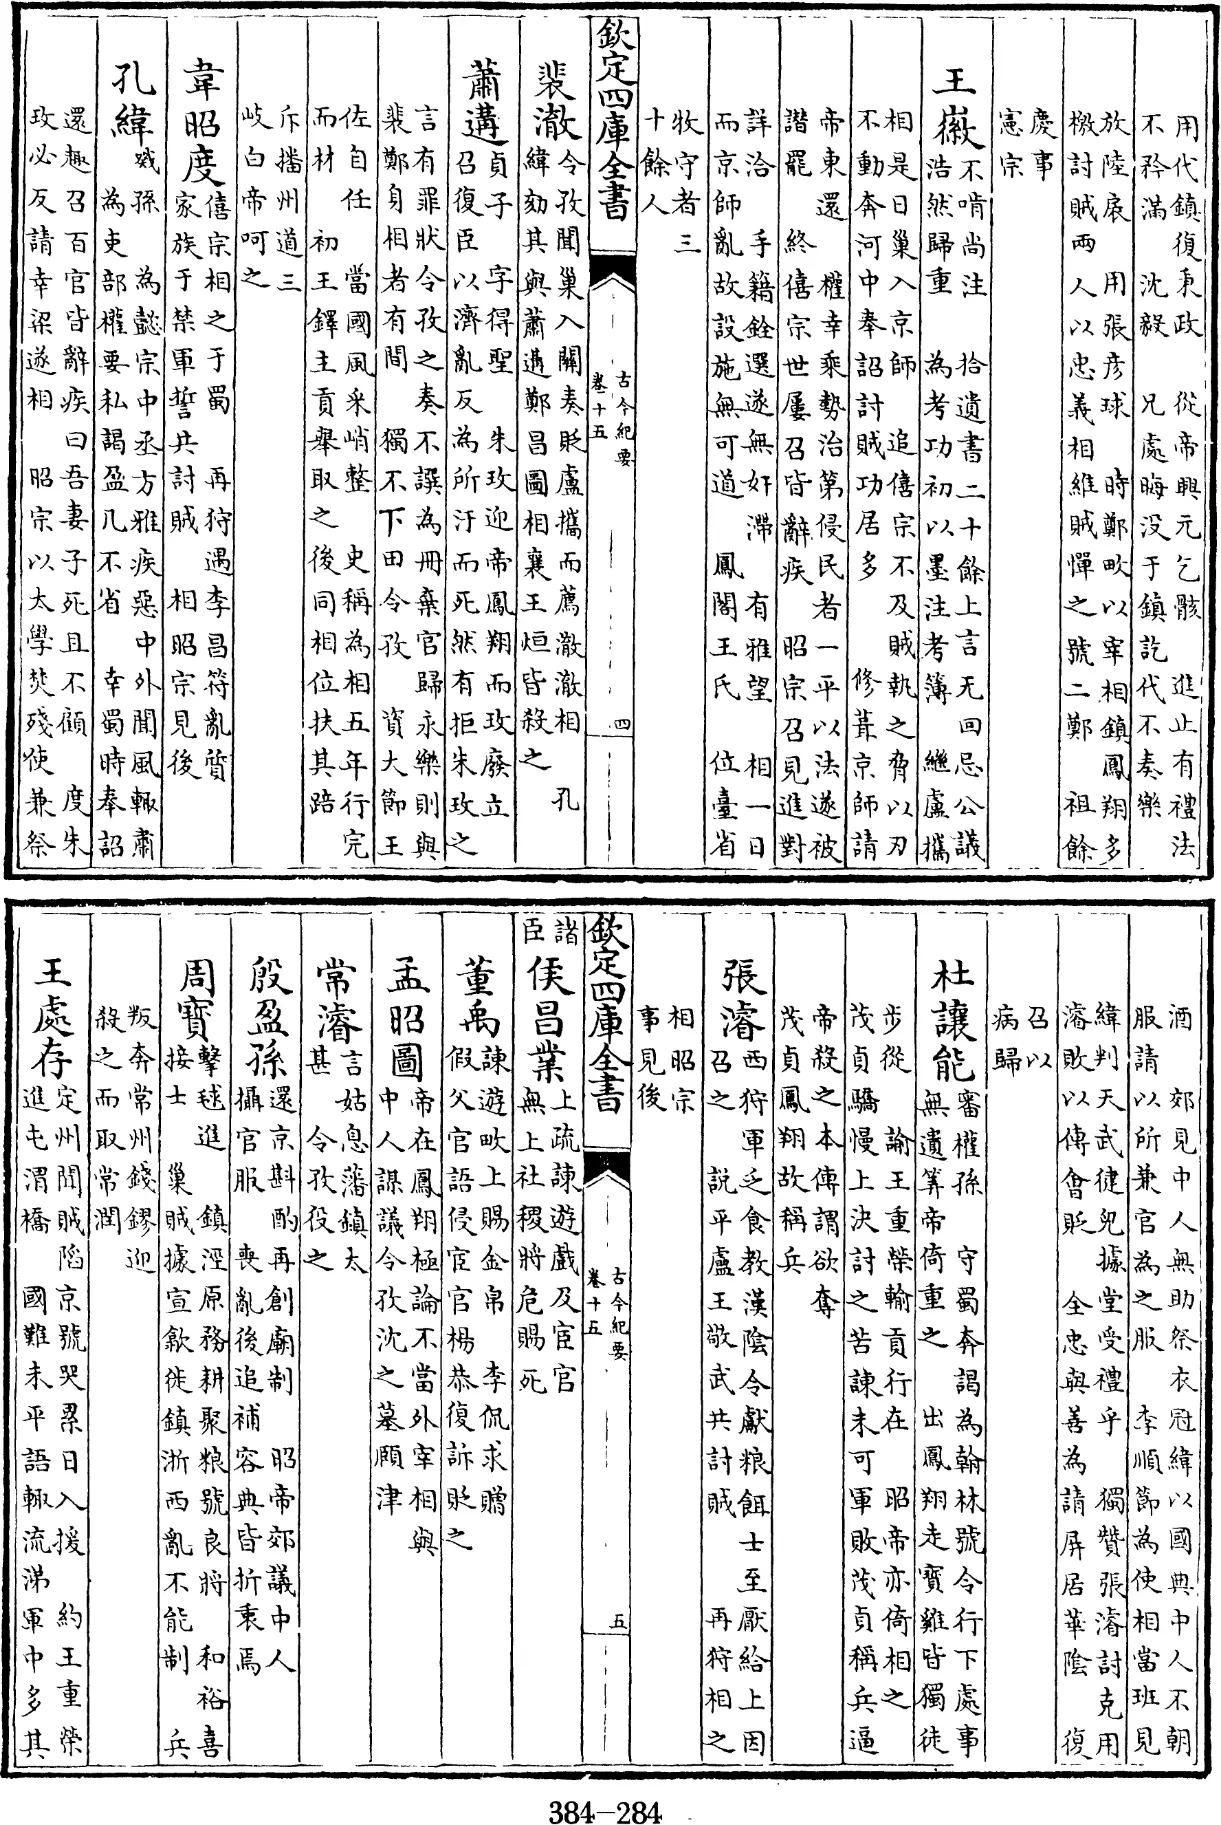 用代鎮復秉政　從帝興元乞骸　進止有禮法
不矜滿　沈毅　兄處晦没于鎮訖代不奏樂
放陸扆　用張彦球　時鄭畋以宰相鎮鳳翔多
檄討賊兩人以忠義相維賊憚之號二鄭　祖餘
慶事
憲宗
王徽
不啃尚注　拾遺書二十餘上言无回忌公議
浩然歸重　為考功初以墨注考簿　繼盧攜
相是日巢入京師　追僖宗不及賊執之脅以刃
不動奔河中奉詔討賊功居多　修葺京師請
帝東還　權幸乘勢治第侵民者一平以法遂被
譖罷　終僖宗世屢召皆辭疾　昭宗召見進對
詳洽　手籍銓選遂無奸滯　有雅望　相一日
而京師亂故設施無可道　鳳閣王氏　位臺省
牧守者三
十餘人
欽定四庫全書
古今紀要
卷十五
四
裴澈
令孜聞巢入關奏貶盧攜而薦澈澈相　孔
緯劾其與蕭遘鄭昌圖相襄王烜皆殺之
蕭遘
貞子　字得聖　朱玫迎帝鳳翔而玫廢立
召復臣以濟亂反為所汙而死然有拒朱玫之
言有罪狀令孜之奏不譔為冊棄官歸永樂則與
裴鄭身相者有間　獨不下田令孜　資大節王
佐自任　當國風采峭整　史稱為相五年行完
而材　初王鐸主貢舉取之後同相位扶其踣
斥播州道三
岐白帝呵之
韋昭度
僖宗相之于蜀　再狩遇李昌符亂質
家族于禁軍誓共討賊　相昭宗見後
孔緯
戣孫　為懿宗中丞方雅疾惡中外聞風輒肅
為吏部權要私謁盈几不省　幸蜀時奉詔
還趣召百官皆辭疾曰吾妻子死且不顧　度朱
玫必反請幸梁遂相　昭宗以太學焚殘使兼祭
酒　郊見中人無助祭衣冠緯以國典中人不朝
服請以所兼官為之服　李順節為使相當班見
緯判天武徤兒據堂受禮乎　獨贊張濬討克用
濬敗以傅會貶　全忠與善為請屏居華陰　復
召以
病歸
杜讓能
審權孫　守蜀奔謁為翰林號令行下處事
無遺筭帝倚重之　出鳳翔走寶雞皆獨徒
步從　諭王重榮輸貢行在　昭帝亦倚相之
茂貞驕慢上決討之苦諫未可軍敗茂貞稱兵逼
帝殺之本傳謂欲奪
茂貞鳳翔故稱兵
張濬
西狩軍乏食教漢陰令獻粮餌士至厭給上因
召之　説平盧王敬武共討賊　再狩相之
相昭宗
事見後
欽定四庫全書
古今紀要
卷十五
五
諸
臣
侯昌業
上疏諫遊戲及宦官
無上社稷將危賜死
董禹
諫遊畋上賜金帛　李侃求贈
假父官語侵宦官楊恭復訴貶之
孟昭圖
帝在鳳翔極論不當外宰相與
中人謀議令孜沈之墓頤津
常濬
言姑息藩鎮太
甚　令孜役之
殷盈孫
還京斟酌再創廟制　昭帝郊議中人
攝官服　喪亂後追補容典皆折衷焉
周寶
擊毬進　鎮涇原務耕聚粮號良將　和裕喜
接士　巢賊據宣歙徙鎮浙西亂不能制　兵
叛奔常州錢鏐迎
殺之而取常潤
王處存
定州聞賊䧟京號哭累日入援　約王重榮
進屯渭橋　國難未平語輒流涕軍中多其
384-284